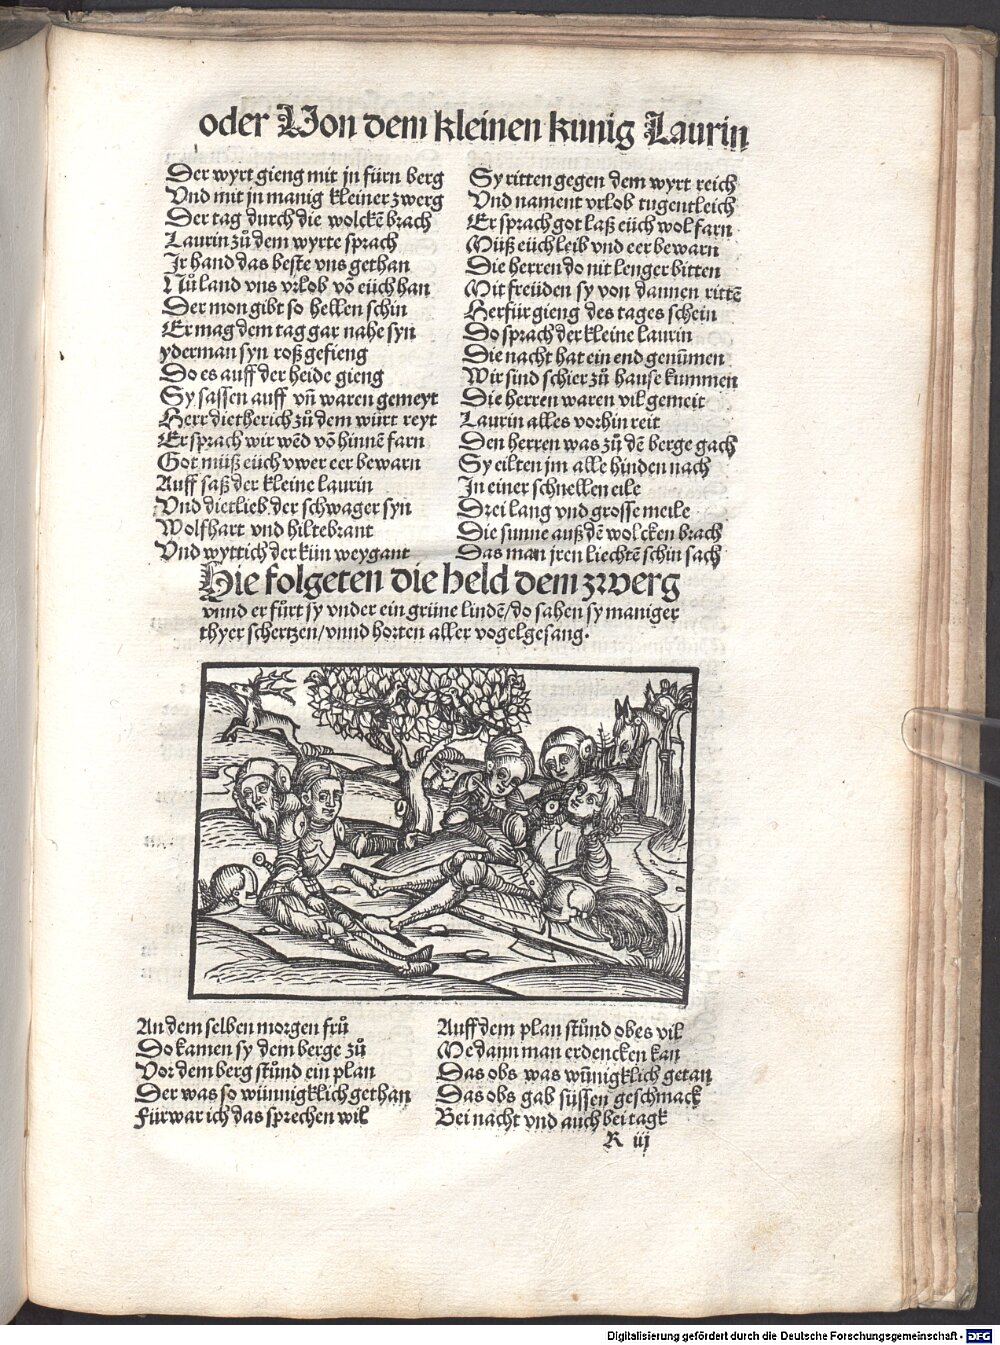 oder Von dem kleinen kunig Laurin
Der wyrt gieng mit jn fürn berg
Vnd mit jn manig kleiner zwerg
Der tag durch die wolckē brach
Laurin zů dem wyrte sprach
Jr hand das beste vns gethan
Nů land vns vrlob vō eüch han
Der mon gibt so hellen schin
Er mag dem tag gar nahe syn
yderman syn roß gefieng
Do es auff der heide gieng
Sy sassen auff vn̄ waren gemeyt
Herr dietherich zů dem würt reyt
Er sprach wir wēd vō hinnē farn
Got müß eüch vwer eer bewarn
Auff saß der kleine laurin
Vnd dietlieb der schwager syn
Wolfhart vnd hiltebrant
Vnd wyttich der kün weygant
Sy ritten gegen dem wyrt reich
Vnd nament vrlob tugentleich
Er sprach got laß eüch wol farn
Müß eüch leib vnd eer bewarn
Die herren do nit lenger bitten
Mit freüden sy von dannen rittē
Herfür gieng des tages schein
Do sprach der kleine laurin
Die nacht hat ein end genūmen
Wir sind schier zů hause kummen
Die herren waren vil gemeit
Laurin alles vorhin reit
Den herren was zů dē berge gach
Sy eilten jm alle hinden nach
In einer schnellen eile
Drei lang vnd grosse meile
Die sunne auß dē wolcken brach
Das man jren liechtē schin sach
Hie folgeten die held dem zwerg
vnnd er fůrt sy vnder ein grüne lindē/do sahen sy maniger
thyer schertzen/vnnd horten aller vogelgesang.
An dem selben morgen frů
Do kamen sy dem berge zů
Vor dem berg stůnd ein plan
Der was so wünnigklich gethan
Fürwar ich das sprechen wil
Auff dem plan stůnd obes vil
Me dann man erdencken kan
Das obs was wūnigklich getan
Das obs gab süssen geschmack
Bei nacht vnd auch bei tagk
R iij
Digitalisierung gefördert durch die Deutsche Forschungsgemeinschaft - DFG